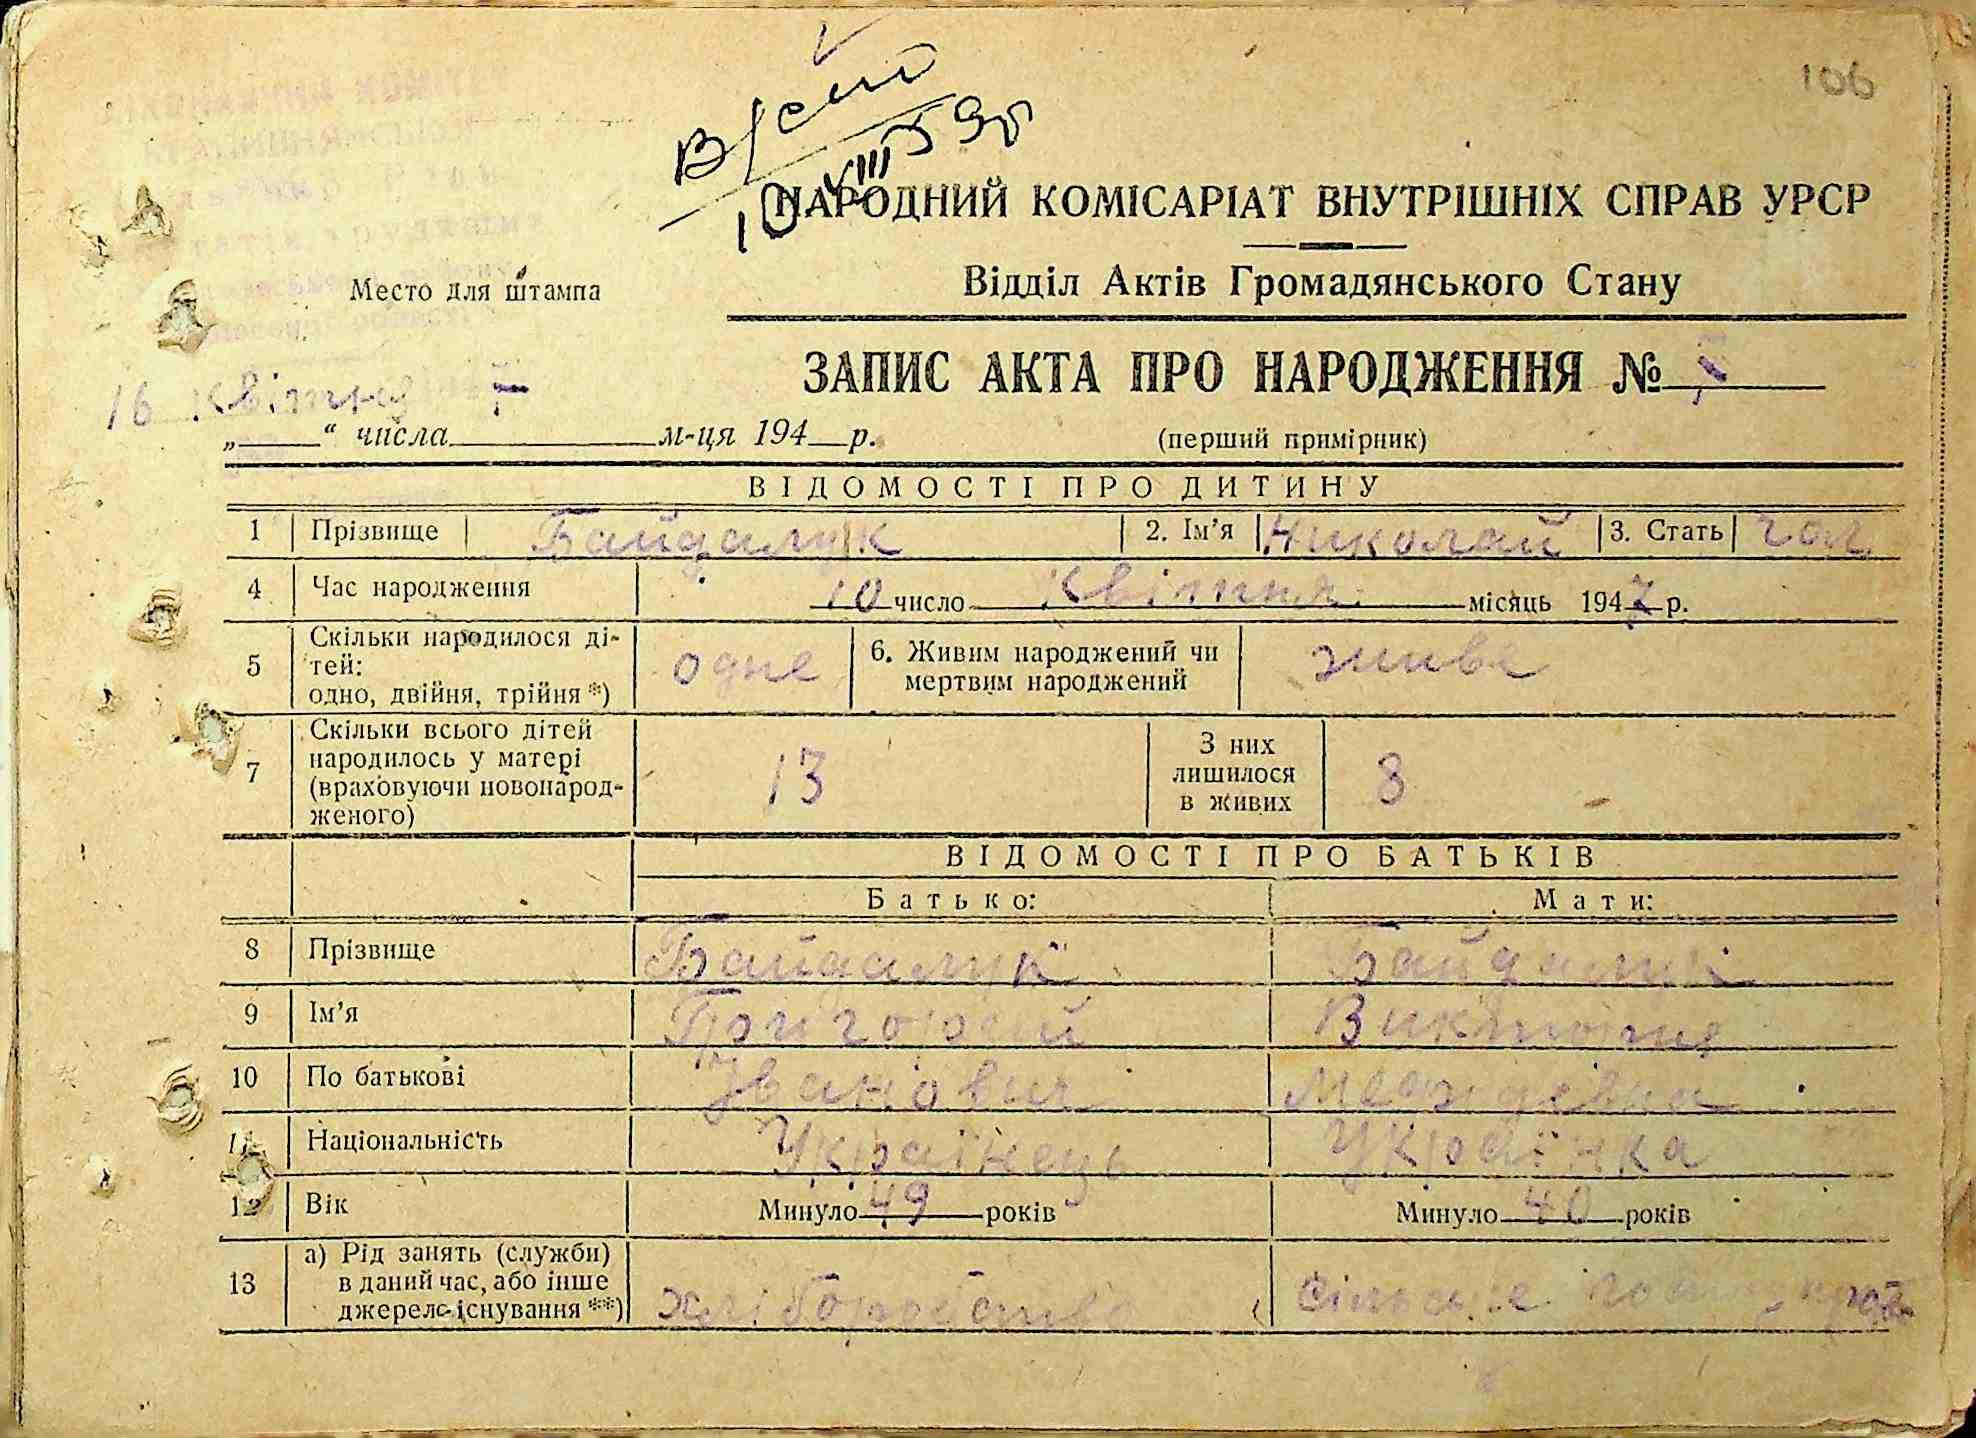 106
НАРОДНИЙ КОМІСАРІАТ ВНУТРІШНІХ СПРАВ УРСР
Место для штампа
Відділ Актів Громадянського Стану
ЗАПИС АКТА ПРО НАРОДЖЕННЯ №
16 квітня 7
„ “ числа м-ця 194 р.
(перший примірник)
ВІДОМОСТІ ПРО ДИТИНУ
1 Прізвище Байдалук 2. Ім’я Николай 3. Стать чол
4 Час народження 10 число квітня місяць 1947 р.
5 Скільки народилося ді-
тей:
одно, двійня, трійня *) одне 6. Живим народжений чи
мертвим народжений живе
7 Скільки всього дітей
народилось у матері
(враховуючи новонарод-
женого) 13 З них
лишилося
в живих 8
ВІДОМОСТІ ПРО БАТЬКІВ
Батько: Мати:
8 Прізвище Байдалук Байдалук
9 Ім’я Григорий Виктория
10 По батькові Іванович
11 Національність Українець Українка
12 Вік Минуло 49 років Минуло 40 років
13 а) Рід занять (служби)
в даний час, або інше
джерело існування **) сільське